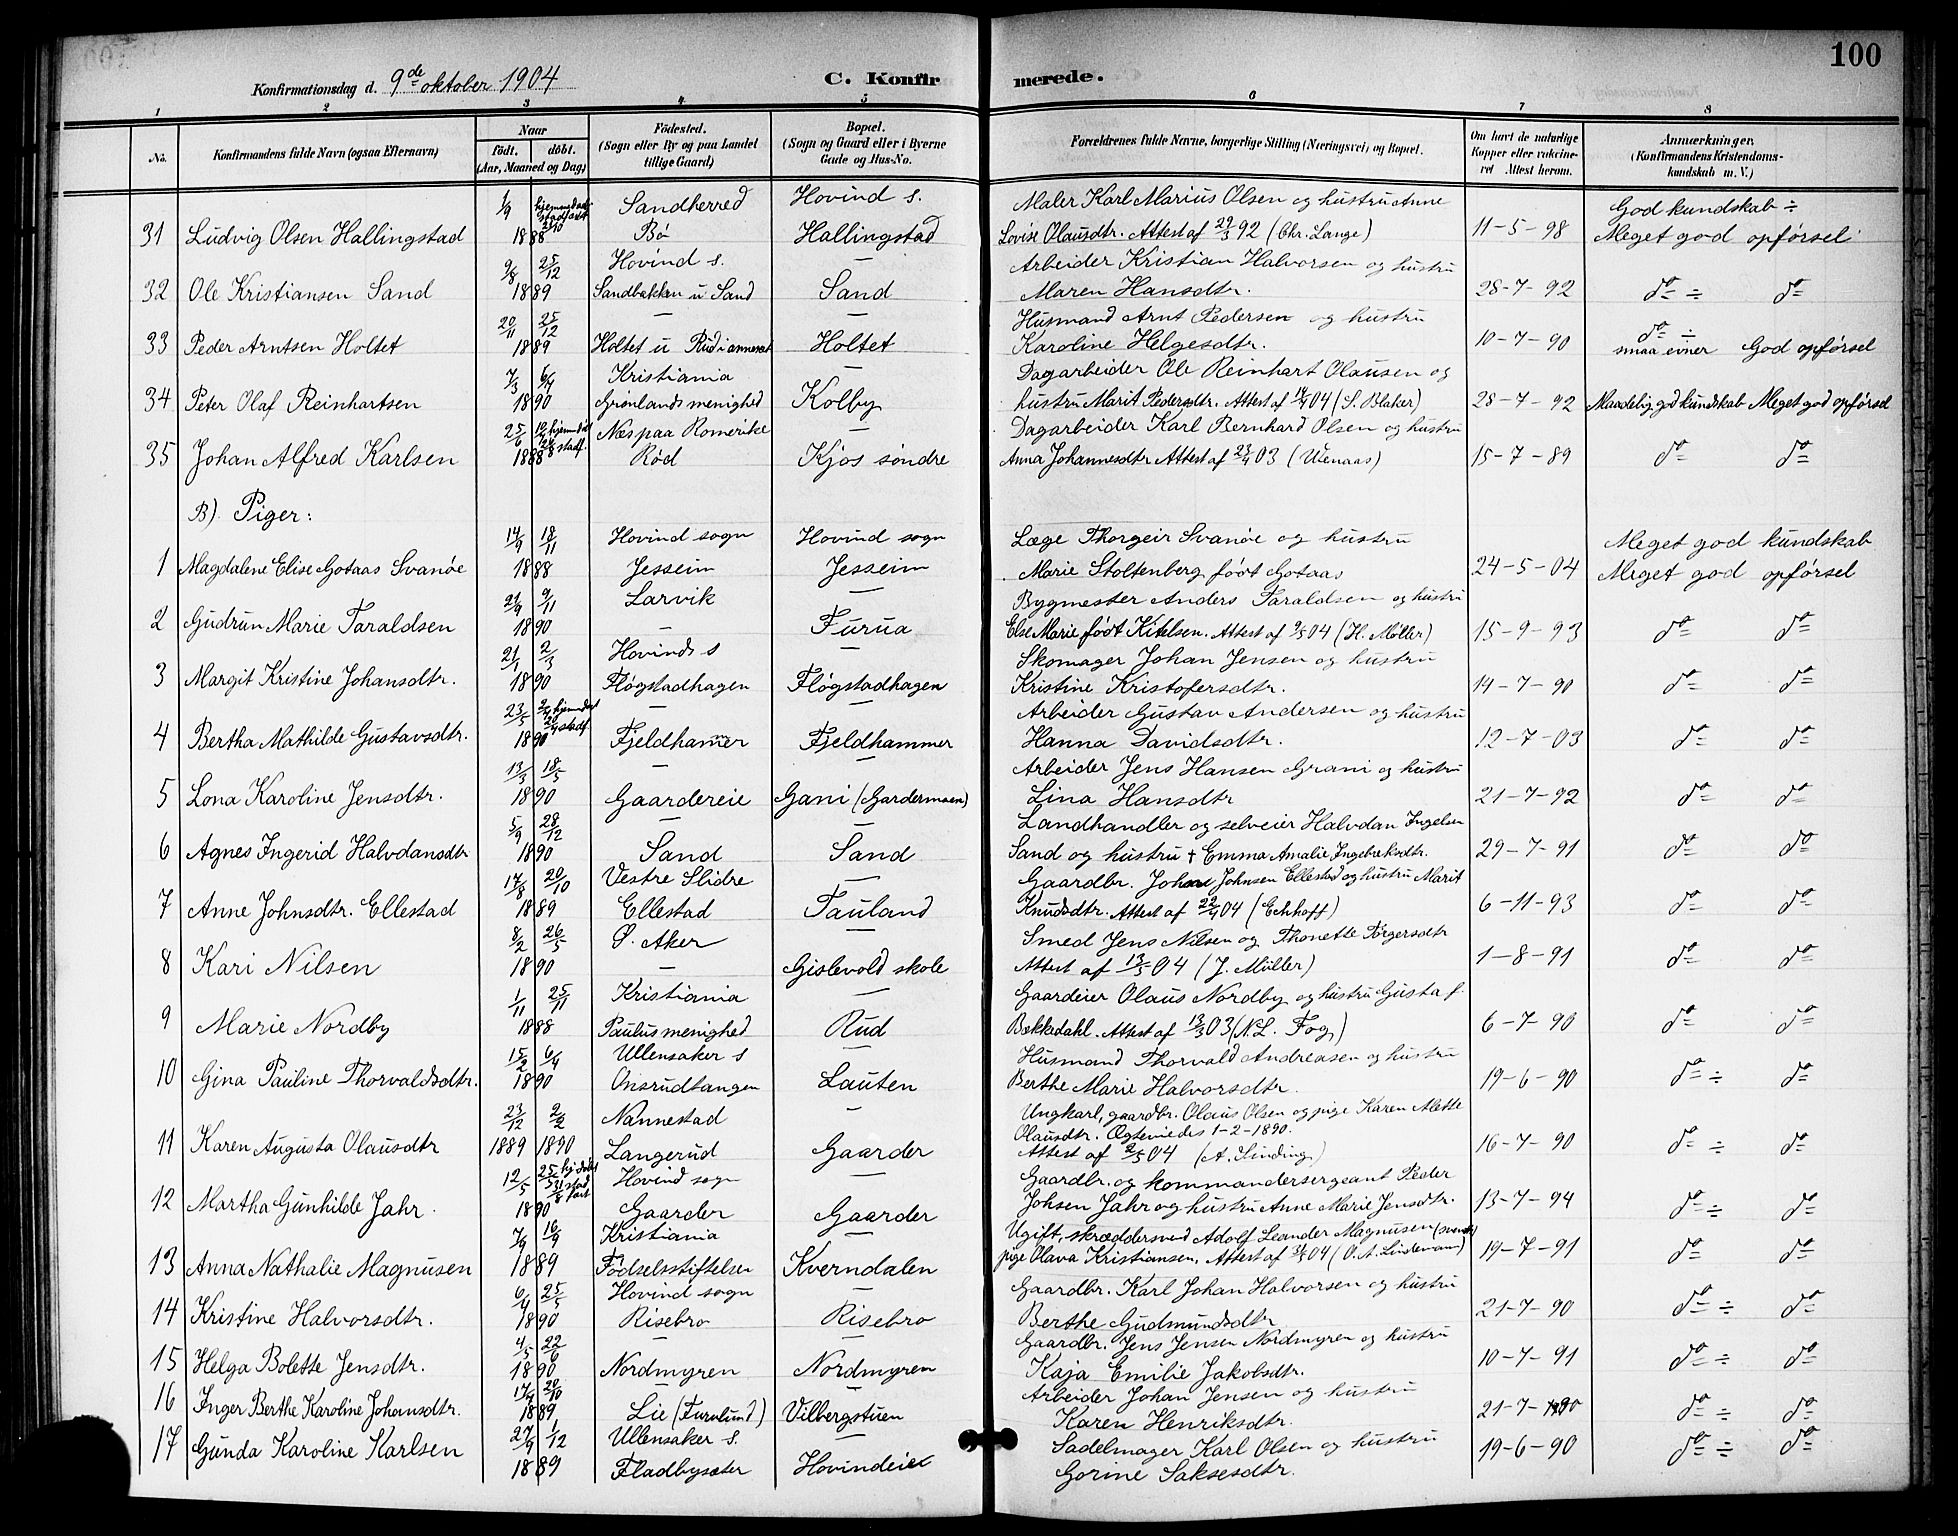 100
Konfirmationsdag d. 9de oktober 1904
C. Konfirmerede.
1 2 3 4 5 6 7 8
No. Konfirmandens fulde Navn (ogsaa Efternavn) Naar födt. döbt. (Aar, Maaned og Dag) Födested. (Sogn eller By og paa Landet tillige Gaard) Bopæl. (Sogn og Gaard eller i Byerne Gade og Hus-No. Forældrenes fulde Navne, borgerlige Stilling (Næringsvei) og Bopæl. Om havt de naturlige Kopper eller vakcineret Attest herom. Anmærkninger. (Konfirmandens Kristendomskundskab m. V.)
1/9 hjemmedøbt stadfæst Sandherred Hovind s. Maler Karl Marius Olsen og hustru Anne God kundskab ÷
31 Ludvig Olsen Hallingstad 1888 Bø Hallingstad Lovise Olausdtr. Attest af 29/3 92 (Chr. Lange) 11-5-98 Meget god opførsel
9/8 25/12 Hovind s. — Arbeider Kristian Halvorsen og hustru
32 Ole Kristiansen Sand 1889 Sandbækken u Sand Sand Maren Hansdtr. 28-7-92 do ÷ do
20/11 25/12 — — Husmand Arnt Pedersen og hustru do ÷
33 Peder Arntsen Holtet 1889 Holtet u Rud i annexet Holtet Karoline Helgesdtr. 10-7-90 smaa evner God opførsel
7/3 6/4 Kristiania — Dagarbeider Ole Reinhart Olausen og
34 Peter Olaf Reinhartsen 1890 Grønlands menighed Kolby hustru Marit Pedersdtr. Attest af 14/4 04 (S. Blaker) 28-7-92 Maadelig god kundskab Meget god opførsel
25/6 hjemmedøbt stadf. Næs paa Romerike — Dagarbeider Karl Bernhard Olsen og hustru
35 Johan Alfred Karlsen 1888 Rød Kjos søndre Anna Johannesdtr Attest af 23/4 03 (Uenaas) 15-7-89 do do
B). Piger:
14/9 18/11 Hovind sogn Hovind sogn Læge Thorgeir Svanøe og hustru Meget god kundskab
1 Magdalene Elise Gotaas Svanøe 1888 Jesseim Jesseim Marie Stoltenberg født Gotaas 24-5-04 Meget god opførsel
21/9 9/11 Larvik — Bygmester Anders Taraldsen og hustru
2 Gudrun Marie Taraldsen 1890 — Furua Else Marie født Kitelsen. Attest af 9/5 04 (H. Møller) 15-9-93 do do
21/1 2/3 Hovinds s — Skomager Johan Jensen og hustru
3 Margit Kristine Johansdtr. 1890 Fløgstadhagen Fløgstadhagen Kristine Kristofersdtr. 14-7-90 do do
23/5 hjemmedøbt stadf. — — Arbeider Gustav Andersen og hustru
4 Bertha Mathilde Gustavsdtr. 1890 Fjeldhamer Fjeldhammer Hanna Davidsdtr. 12-7-03 do do
13/3 18/5 — — Arbeider Jens Hansen Grani og hustru
5 Lona Karoline Jensdtr. 1890 Gaardereie Gani (Gardermoen) Lina Hansdtr 21-7-92 do do
5/9 28/12 — — Landhandler og selveier Halvdan Ingelsen
6 Agnes Ingerid Halvdansdtr 1890 Sand Sand Sand og hustru + Emma Amalie Ingebreksdtr. 29-7-91 do do
17/8 20/10 Vestre Slidre — Gaardbr. John Johnsen Ellestad og hustru Marit
7 Anne Johnsdtr. Ellestad 1889 Ellestad Tauland Knudsdtr. Attest af 22/4 04 (Echhoff) 6-11-93 do do
8/2 26/5 Ø. Aker — Smed Jens Nilsen og Thonette Torgersdtr
8 Kari Nilsen 1890 — Gislevold skole Attest af 13/5 04 (J. Müller) 1-8-91 do do
1/11 25/11 Kristiania — Gaardeier Olaus Nordby og hustru Gusta f.
9 Marie Nordby 1888 Paulus menighed Rud Bækkedahl. Attest af 13/3 03 (N. L. Fog) 6-7-90 do do
15/2 6/4 Ullensaker s — Husmand Thorvald Andreasen og hustru
10 Gina Pauline Thorvaldsdtr. 1890 Onsrudtangen Lauten Berthe Marie Halvorsdtr. 19-6-90 do ÷ do
23/12 2/2 Nannestad — Ungkarl, gaardbr. Olaus Olsen og pige Karen Alette
Olausdtr. Ægteviedes 1-2-1890.
11 Karen Augusta Olausdtr 1889 1890 Langerud Gaarder Attest af 2/5 04 (A. Sinding) 16-7-90 do ÷ do
12/5 Hovind sogn — Gaardbr. og kommandersergeant Peder
12 Martha Gunhilde Jahr. 1890 Gaarder Gaarder Johsen Jahr og hustru Anne Marie Jensdtr. 13-7-94 do ÷ do
7/9 16/9 Kristiania — Ugift, skræddersvend Adolf Leander Magnusen (svensk)
13 Anna Nathalie Magnusen 1889 Fødselsstiftelsen Kverndalen pige Olava Kristiansen. Attest af 04 (O. A. Lindeman) 19-7-91 do do
6/4 25/5 Hovind sogn — Gaardbr. Karl Johan Halvorsen og hustru
14 Kristine Halvorsdtr. 1890 Risebro Risebro Berthe Gudmundsdtr 21-7-90 do ÷ do
4/5 22/6 — — Gaardbr. Jens Jensen Nordmyren og hustru
15 Helga Bolette Jensdtr. 1890 Nordmyren Nordmyren Kaja Emilie Jakobsdtr. 10-7-91 do ÷ do
17/9 20/10 — — Arbeider Johan Jensen og hustru
16 Inger Berthe Karoline Johansdtr. 1889 Lie (Furulund) Vilbergstuen Karen Henriksdtr. 21-7-90 do ÷ do
27/9 1/12 Ullensaker s. — Sadelmager Karl Olsen og hustru
17 Gunda Karoline Karlsen 1889 Fladbysæter Hovindeie Gorine Saksesdtr. 19-6-90 do ÷ do